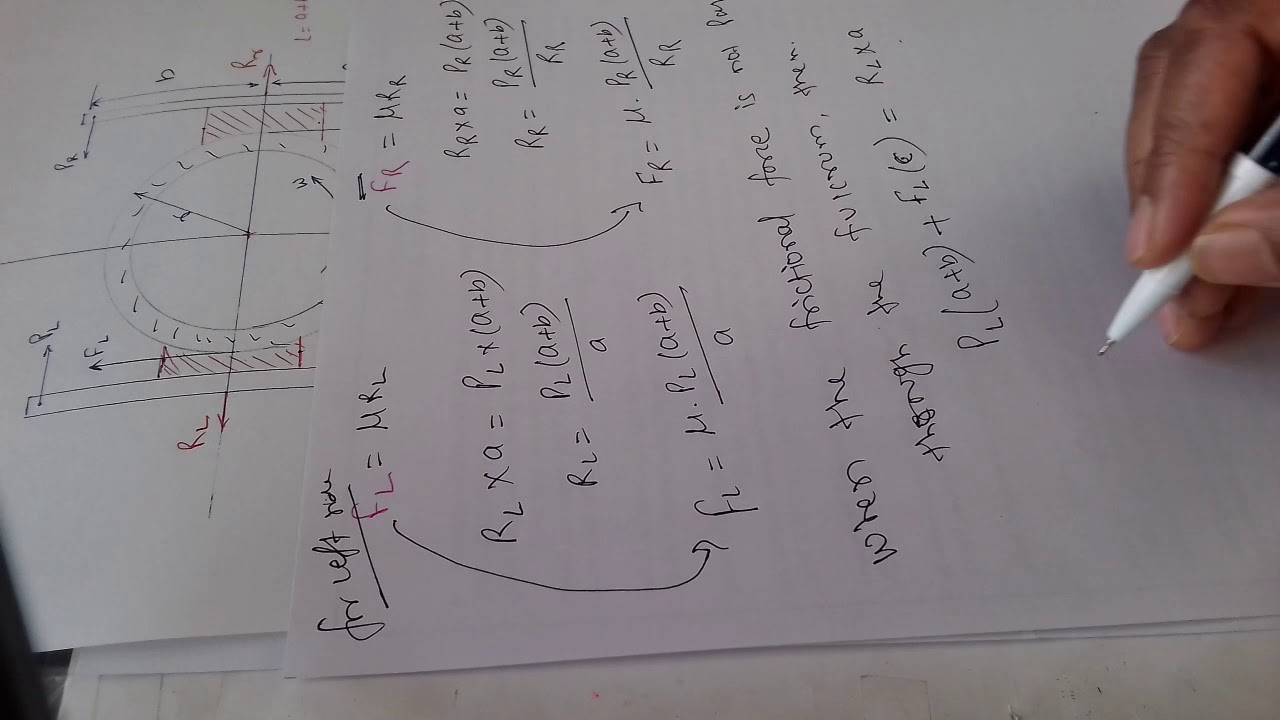 L = a+
b
Rr
PR
r
w
PL
FL
RL
for Left side
FL = μRL
RL × a = PL × (a+b)
RL = PL (a+b) / a
FL = μ. PL (a+b) / a
FR = μRR
RR × a = PR (a+b)
RR = PR (a+b) / RR
FR = μ. PR (a+b) / RR
when the frictional force is not
through the fulcrum, then.
PL (a+b) + FL (c) = RL × a